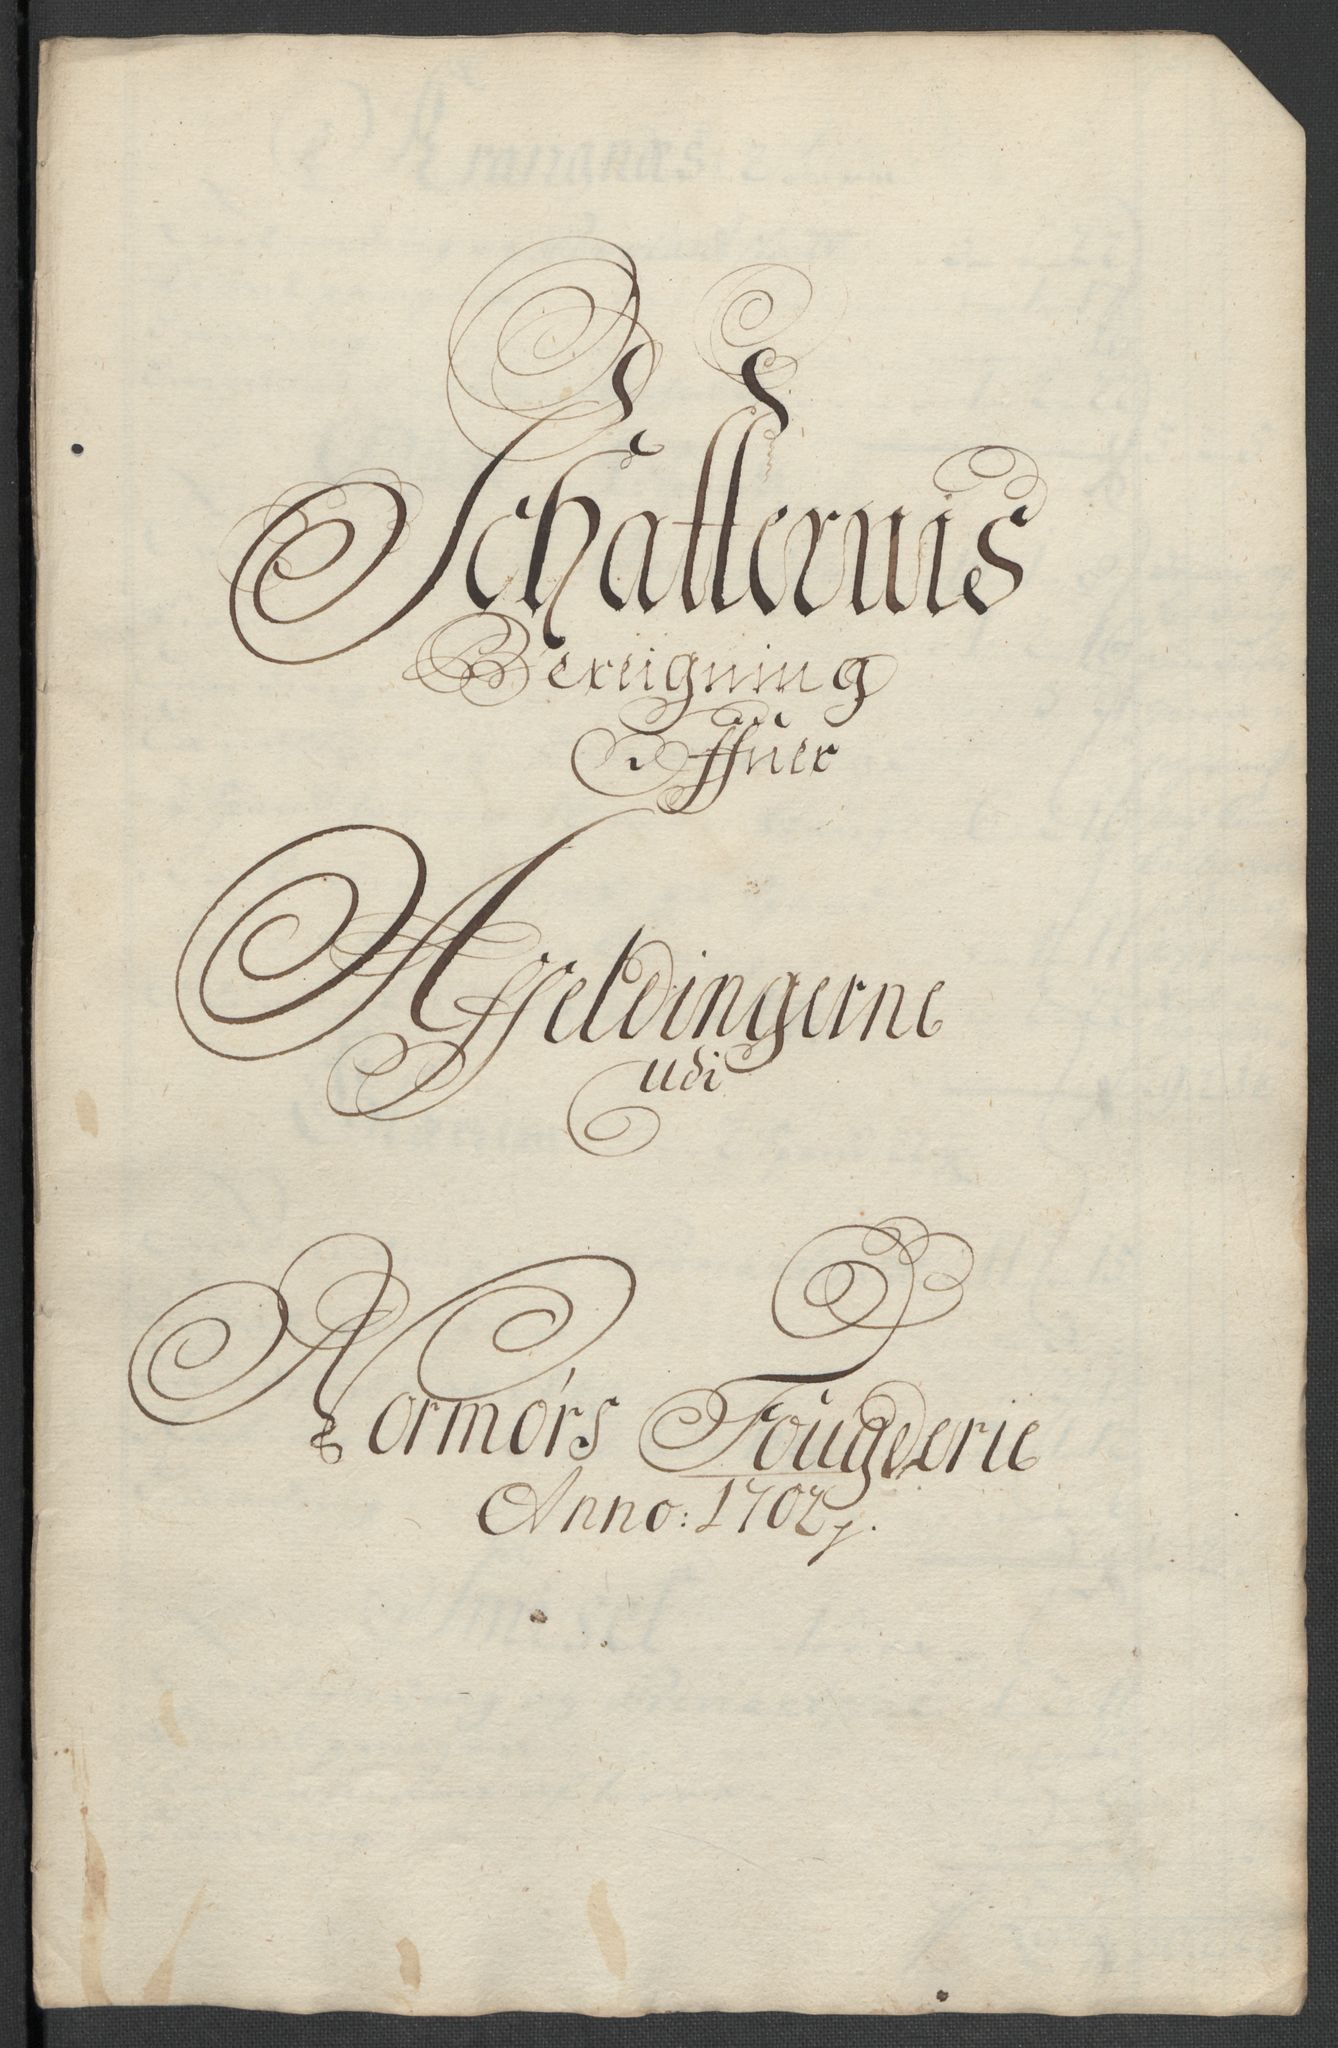 Schatternis
Bereigning
Offuer
Affeldingerne
udi
Normørs Fougderie
Anno: 1702